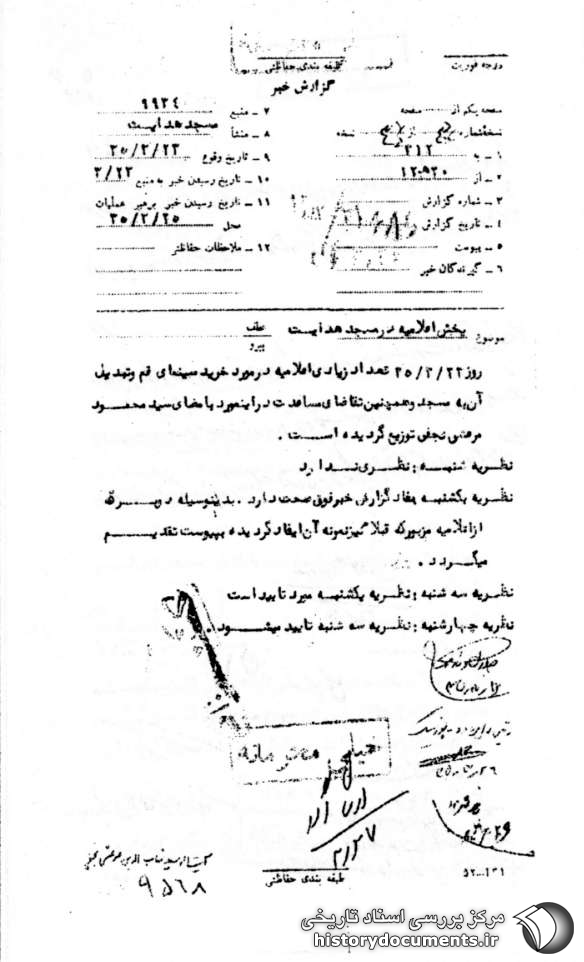 درجه فوریت
طبقه بندی حفاظتی
گزارش خبر
صفحه یکم از صفحه
نسخه شماره از نسخه
۱ - به ۳۱۲
۲ - از ۱۲۵۲۰
۳ - شماره گزارش
۴ - تاریخ گزارش
۵ - پیوست
۶ - گیرندگان خبر
۷ - منبع ۹۹۳۴
۸ - منشأ مسجد هدایت
۹ - تاریخ وقوع ۳۵/۲/۲۳
۱۰ - تاریخ رسیدن خبر به منبع ۲/۲۳
۱۱ - تاریخ رسیدن خبر برهبر عملیات
محل ۳۵/۲/۲۵
۱۲ - ملاحظات حفاظتی
موضوع پخش اعلامیه در مسجد هدایت
عطف
پیرو
روز ۳۵/۲/۲۳ تعداد زیادی اعلامیه در مورد خرید سینمای قم و تبدیل
آن به مسجد و همچنین تقاضای مساعدت در اینمورد بامضای سید محمود
مرعشی نجفی توزیع گردیده است .
نظریه شنبه : نظری ندارد
نظریه یکشنبه بمفاد گزارش خبر فوق صحت دارد . بدینوسیله دو برگ
از اعلامیه مزبور که قبلا نیز نمونه آن ایفاد گردیده بپیوست تقدیم
میگردد .
نظریه سه شنبه : نظریه یکشنبه مورد تایید است
نظریه چهارشنبه : نظریه سه شنبه تایید میشود
خیلی محرمانه
۲/۲۷
طبقه بندی حفاظتی
آیت‌اله سید شهاب الدین مرعشی نجفی
۹۵۶۸
مرکز بررسی اسناد تاریخی
historydocuments.ir